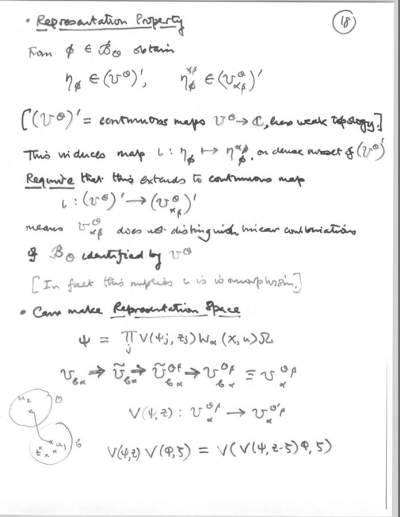 • Representation Property
18
From ϕ ∈ B_O obtain
η_ϕ ∈ (V^O)', η_ϕ^{αβ} ∈ (V^O_{αβ})'
[(V^O)' = continuous maps V^O → C, has weak topology.]
This induces map ι : η_ϕ ↦ η_ϕ^{αβ}, on dense subset of (V^O)'
Require that this extends to continuous map
ι : (V^O)' → (V^O_{αβ})'
means V^O_{αβ} does not distinguish linear combinations
of B_O identified by V^O
[In fact this implies ι is isomorphism.]
• Can make Representation Space
Ψ = ∏_j V(ψ_j, z_j) W_α(χ, u) Ω
V_{Gα} → Ṽ_{Gα} → Ṽ^{Oβ}_{Gα} → V^{Oβ}_{Gα} ≡ V^{Oβ}_α
u_2 O
V(ψ, z) : V^{Oβ}_α → V^{O'β}_α
u_1 G
V(ψ,z) V(ϕ,ζ) = V(V(ψ, z-ζ)ϕ, ζ)